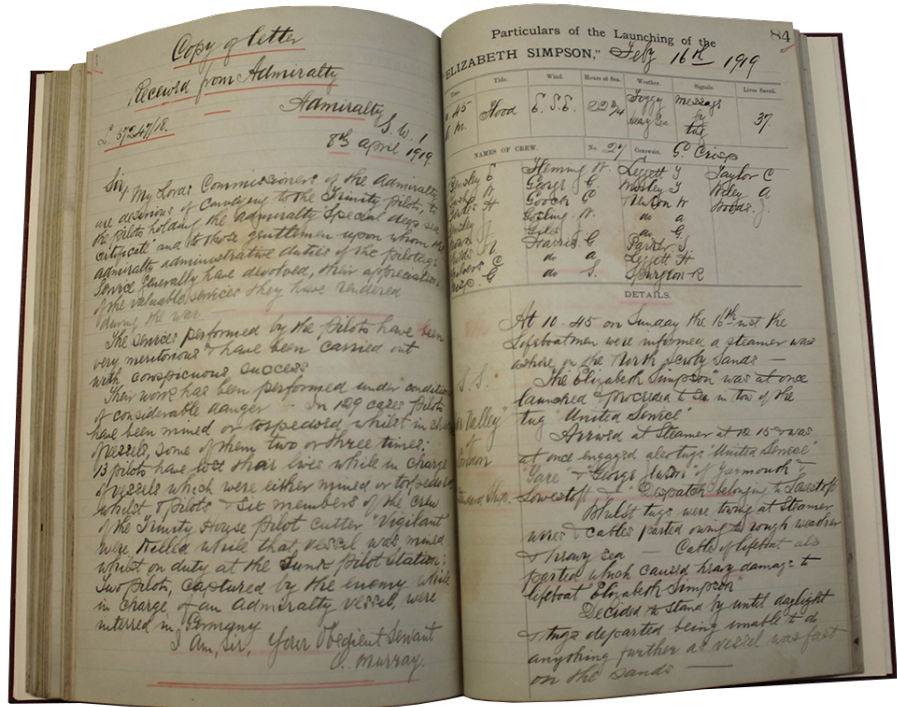 Copy of letter
Received from Admiralty
Admiralty
S. W. 1
L. 57247/18.
8th April 1919
Sir, My Lords Commissioners of the Admiralty
are desirous of conveying to the Trinity pilots, to
the pilots holding the Admiralty Special deep sea
certificate and to those gentlemen upon whom the
admiralty administrative duties of the pilotage
Service generally have devolved, their appreciation
of the valuable services they have rendered
during the war.
The services performed by the pilots have been
very meritorious & have been carried out
with conspicuous success
Their work has been performed under conditions
of considerable danger - In 129 cases pilots
have been mined or torpedoed whilst in
of vessels, some of them two or three times:
13 pilots have lost their lives while in charge
of vessels which were either mined or torpedoed
whilst pilots & six members of the crew
of the Trinity House pilot cutter "Vigilant"
were killed while that vessel was mined
whilst on duty at the Sunk pilot Station:
Two pilots, captured by the enemy while
in charge of an Admiralty vessel, were
interred in Germany
I am, Sir, Your Obedient Servant
O. Murray.
84
Particulars of the Launching of the
"ELIZABETH SIMPSON," Feby 16th 1919
Time. Tide. Wind. Hours at Sea. Weather Signals. Lives Saved.
45 Flood E. S. E. 22 3/4 Foggy Message 37
M. Heavy Sea by
tug
NAMES OF CREW. No. 27 Coxswain. G. Crisp
C Fleming W. Leggett J Taylor C
George G Woolsey J Wiley A
H Gooch C Newson W Woods J.
Gosling W. do a
Giles do G.
Harris G Parker S.
do a. Leggett H
G do S. Spurgeon R
DETAILS.
At 10.45 on Sunday the 16th inst the
Lifeboatmen were informed a steamer was
ashore on the North Scroby Sands -
S. S. The Elizabeth Simpson" was at once
launched & proceeded to sea in tow of the
Valley" tug "United Service"
of Arrived at Steamer at 12.15 & was
London at once engaged also tugs "United Service"
"Gare" & "George Jewson" of Yarmouth &
Lowestoft & "Despatch" belonging to Lowestoft
Whilst tugs were towing at Steamer
wires & cables parted owing to rough weather
& heavy sea - Cable of lifeboat also
parted which caused heavy damage to
lifeboat Elizabeth Simpson
Decided to stand by until daylight
& tugs departed being unable to do
anything further as vessel was fast
on the sands -